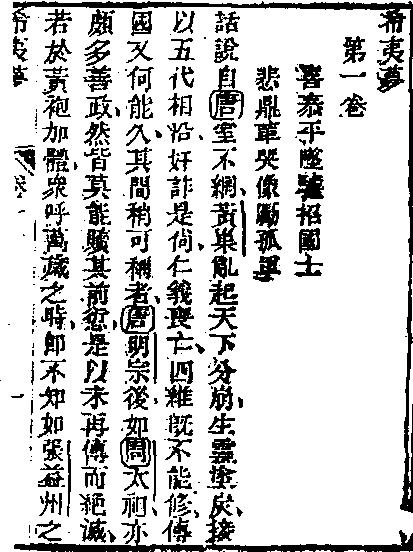 希夷夢
第一卷
喜泰平墜驢招國士
悲鼎革哭像勵孤軍
話說自唐室不綱黃巢亂起天下分崩生靈塗炭接
以五代相沿奸詐是尙仁義喪亡四維旣不能修傳
國又何能久其間稍可稱者唐明宗後如周太祖亦
頗多善政然皆莫能贖其前愆是以未再傳而絕滅
若於黃袍加體衆呼萬歲之時卽不知如張益州之
希夷夢 卷一 一